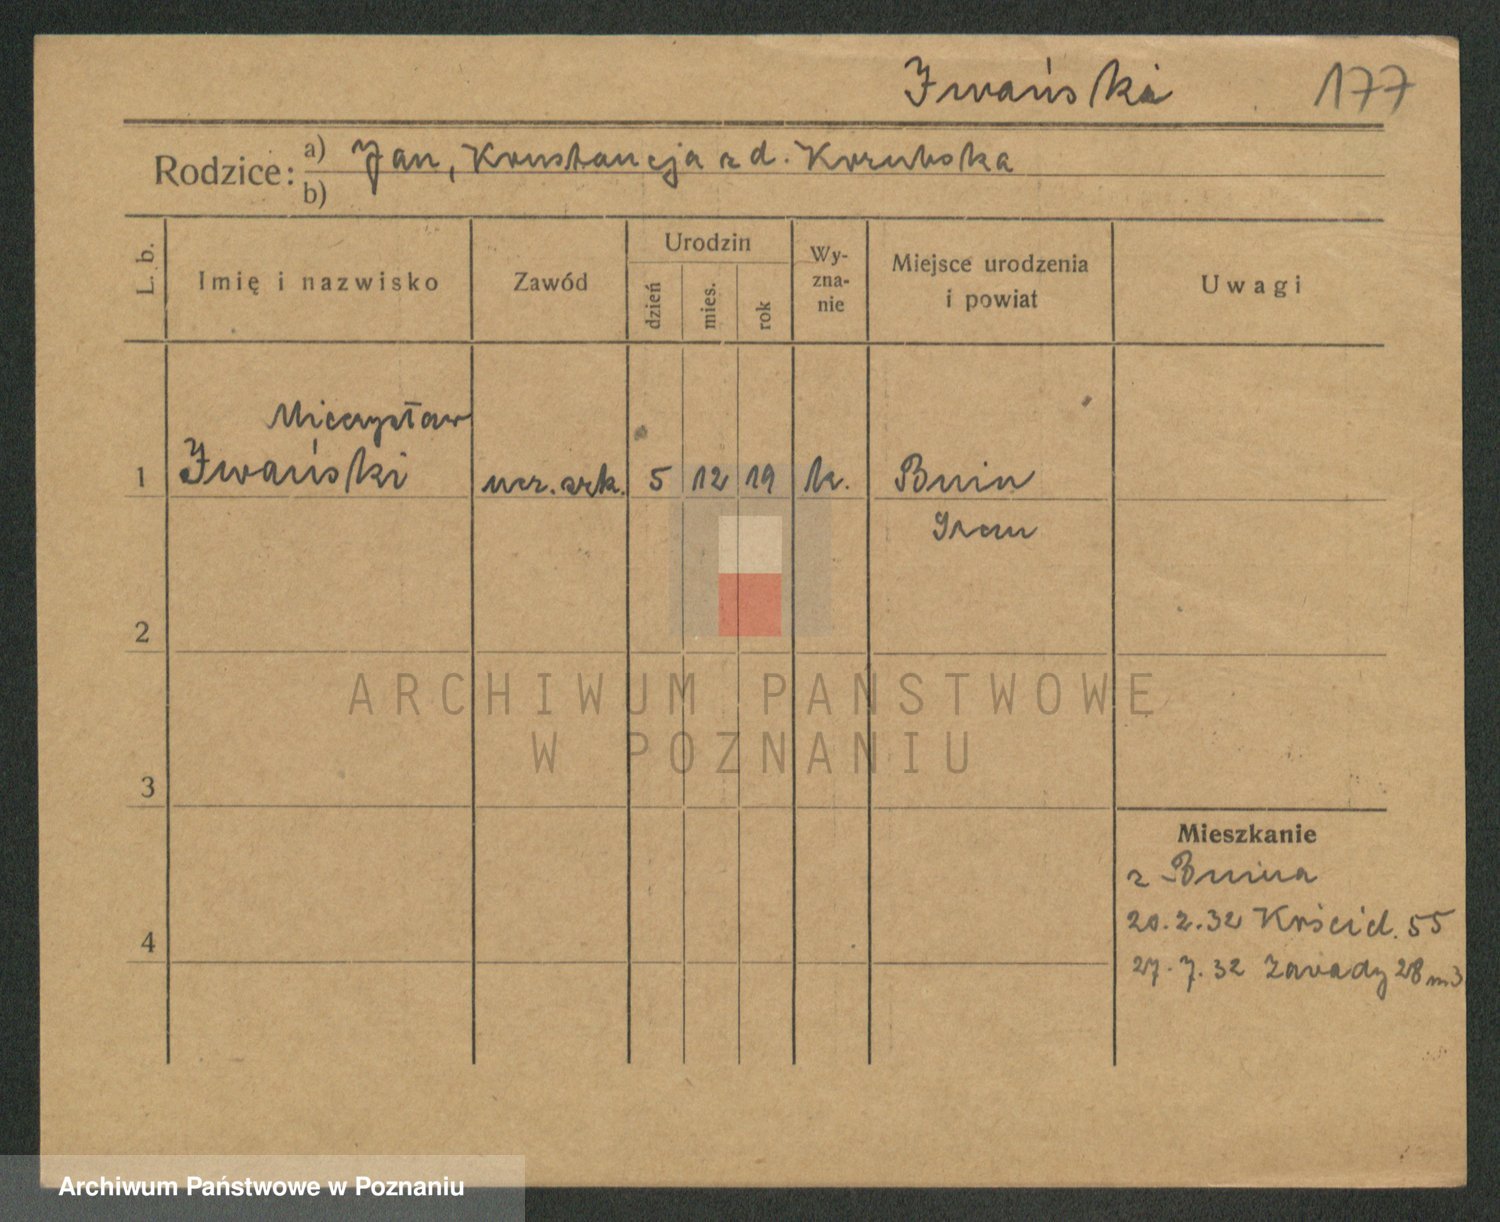 Iwański 177
Rodzice: a) Jan, Konstancja z d. Kozubska
b)
L. b. Imię i nazwisko Zawód Urodzin dzień mies. rok Wy-
zna-
nie Miejsce urodzenia
i powiat Uwagi
Mieczysław
1 Iwański ucz. szk. 5 12 19 k. Bnin
Śrem
2
ARCHIWUM PAŃSTWOWE
W POZNANIU
3
Mieszkanie
z Bnina
20.2.32 55
4
27.7.32 Zawady 28 m3
Archiwum Państwowe w Poznaniu